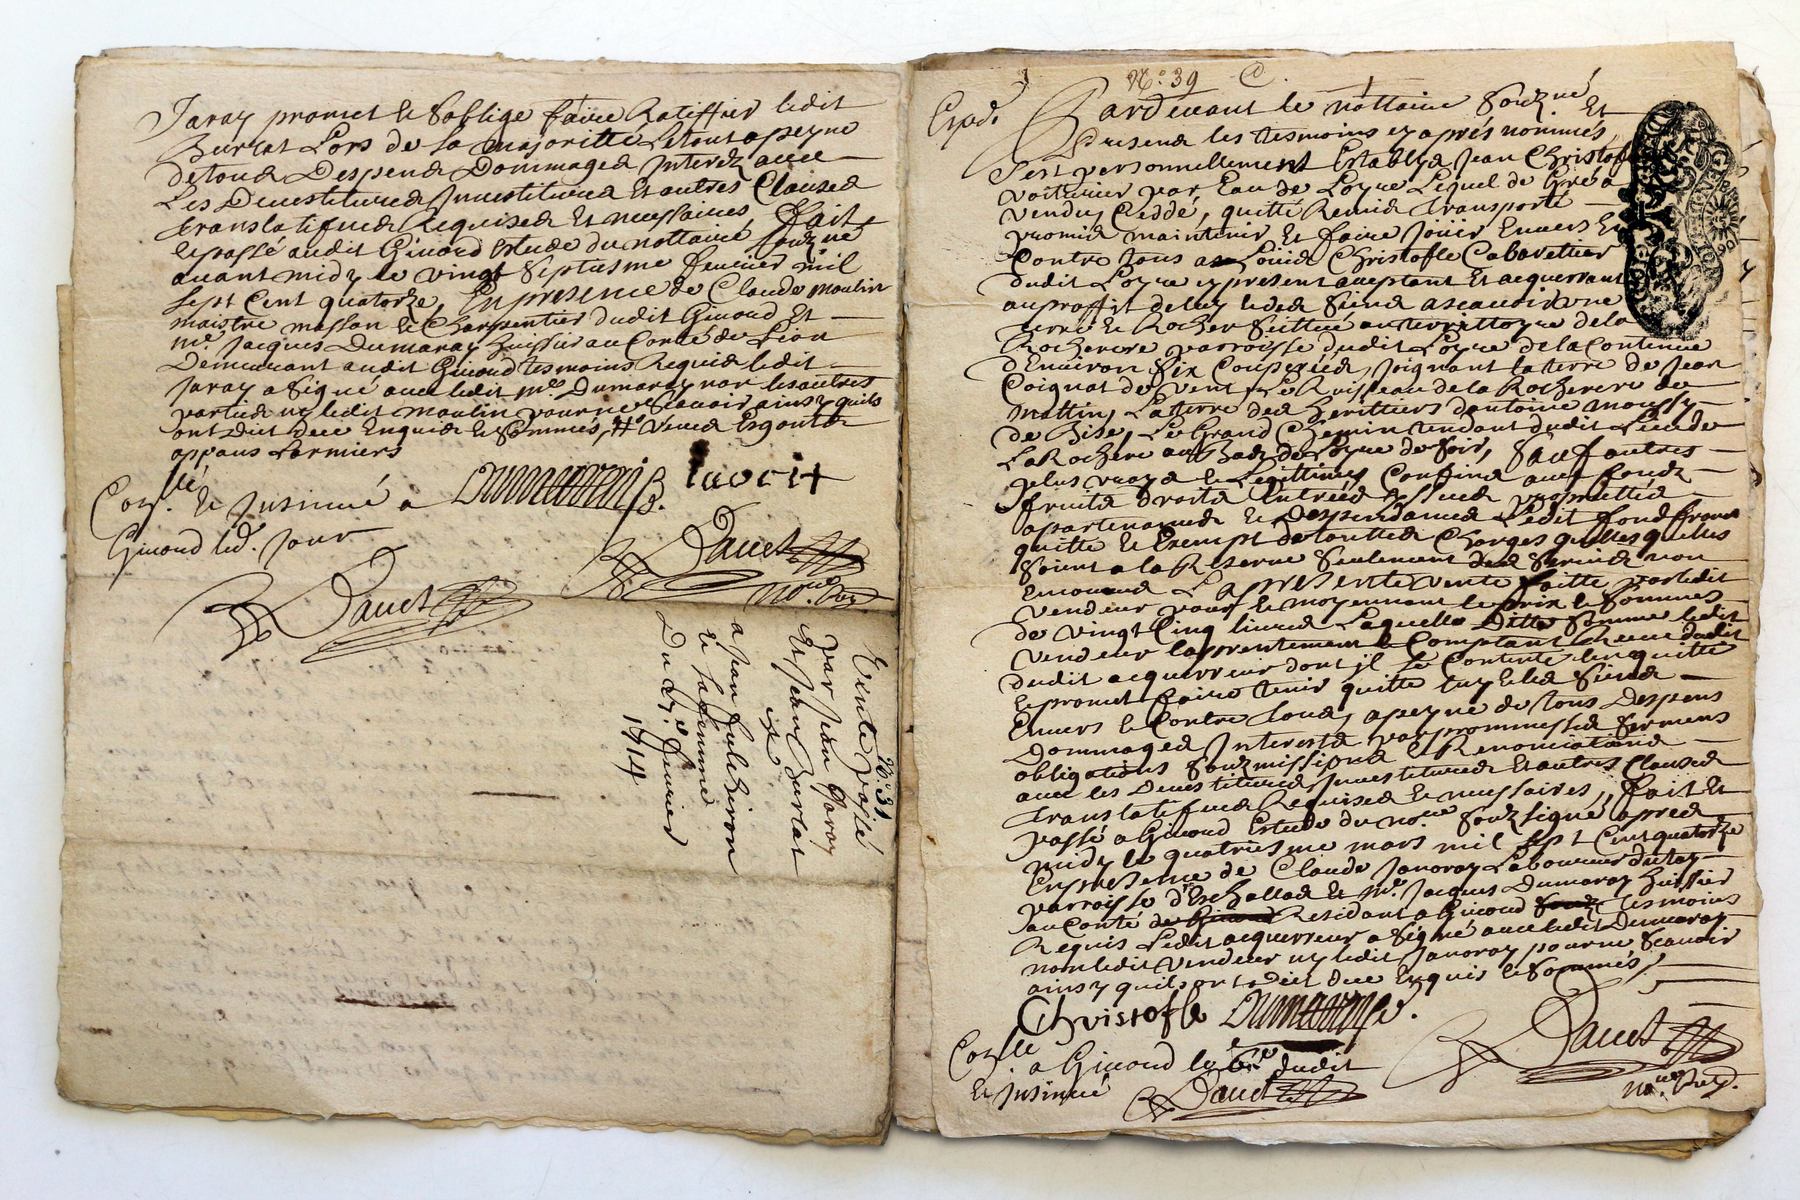 Jaray promet et s'oblige faire Ratiffier ledit
Burlat Lors de sa majoritte Letout apeyne
detoud Despend Dommaged Interez avec
Les Devestitured Investitured Et autres Clauzed
translatifved Requised Et necessaires, fait
et passé audit Givord Estude du nottaire souzné
avant midy le vingt septiesme fevrier mil
sept Cent quatorze, En presence de Claude moulin
maistre masson et Charpentier dudit Givord Et
mr. Jacques Dumaray huissier au Conté de Lion
Demeurant audit Givord tesmoins Requis ledit
Jaray a signé avec ledit mr. Dumaray non les autres
partied ny ledit moulin pour ne scavoir ainsy quils
ont dict dece Enquis et sommés,
Con.llé et Insinué a
Givord led. Jour
Dauet
Dauet
N. 31
Vente passé
par Jean Jaray
Et Jean Burlat
a Jean
et sa femme
Du 27e fevrier
1714
N.° 39
Exped.
Pardevant le nottaire souzné Et
presend les tesmoins cy aprés nommés,
s'est personnellement Establyd Jean Christofle
voiturier par Eau de Loyre Lequel de Gré a
vendu, Ceddé, quitté Remid transporté
promid maintenir Et faire Jouir Envers Et
Contre tous a Louid Christofle Cabarettier
dudit Loyre cy present aceptant Et acquerrant
au proffit de luy et des siend ascavoir une
terre et Rocher scittué au territtoyre de la
Rochere parroisse dudit Loyre de la Contenue
d'Environ six Couperied, Joignant la terre de Jean
Coignat de vent, Le Ruisseau de la Rochere de
mattin, La terre ded heritiers d'antoine moussy
de Bise, Le Grand Chemin tendant dudit Lieu de
La Rochere au de Loyre de soir, sauf autres
plus vrayd et Legittimes Confind avec fondz
fruitd droitd Entréed Issued proprietted
apartenanced et Despendanced Ledit fond franc
quitte et Exempt de touttes Charges quelles quelles
soient a la Reserve seulement ded servid non
La presente vente faitte par ledit
vendeur pour et moyennant le prix et somme
de vingt Cinq livred Laquelle Ditte somme ledit
vendeur a presentement et Comptant Receue dudit
dudit acquerreur dont jl se Contente len quitte
et promet faire tenir quitte luy et les siend
Envers et Contre tous, apeyne de tous Despens
Dommaged Interestz par prommessed sermens
obligations souzmissiond et Renonciationd
avec les Devestitured Investitured Et autres Clauzed
translatifved Requised et necessaires, fait Et
passé a Givord Estude du nore. souzsigné apred
midy le quatriesme mars mil sept Cent quatorze
En presence de Claude Janoray Laboureur de la
parroisse d'Eschallad et mr. Jacques Dumaray huissier
au Conté Residant a Givord tesmoins
Requis Ledit acquerreur a signé avec ledit Dumaray
non ledit vendeur ny ledit Janoray pour ne scavoir
ainsy quils ont dict dece Enquis et sommés
Christofle
Con.llé a Givord le dudit
et Insinué
Dauet
Dauet